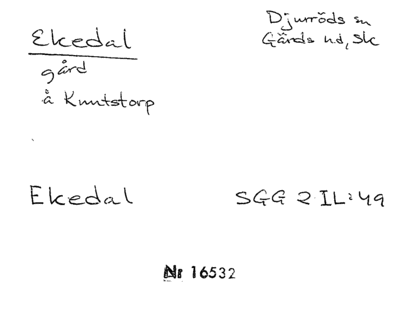 Ekedal
gård
å Knutstorp
Djurröds sn
Gärds hd, Sk
Ekedal
SGG 2 IL:49
Nr 16532